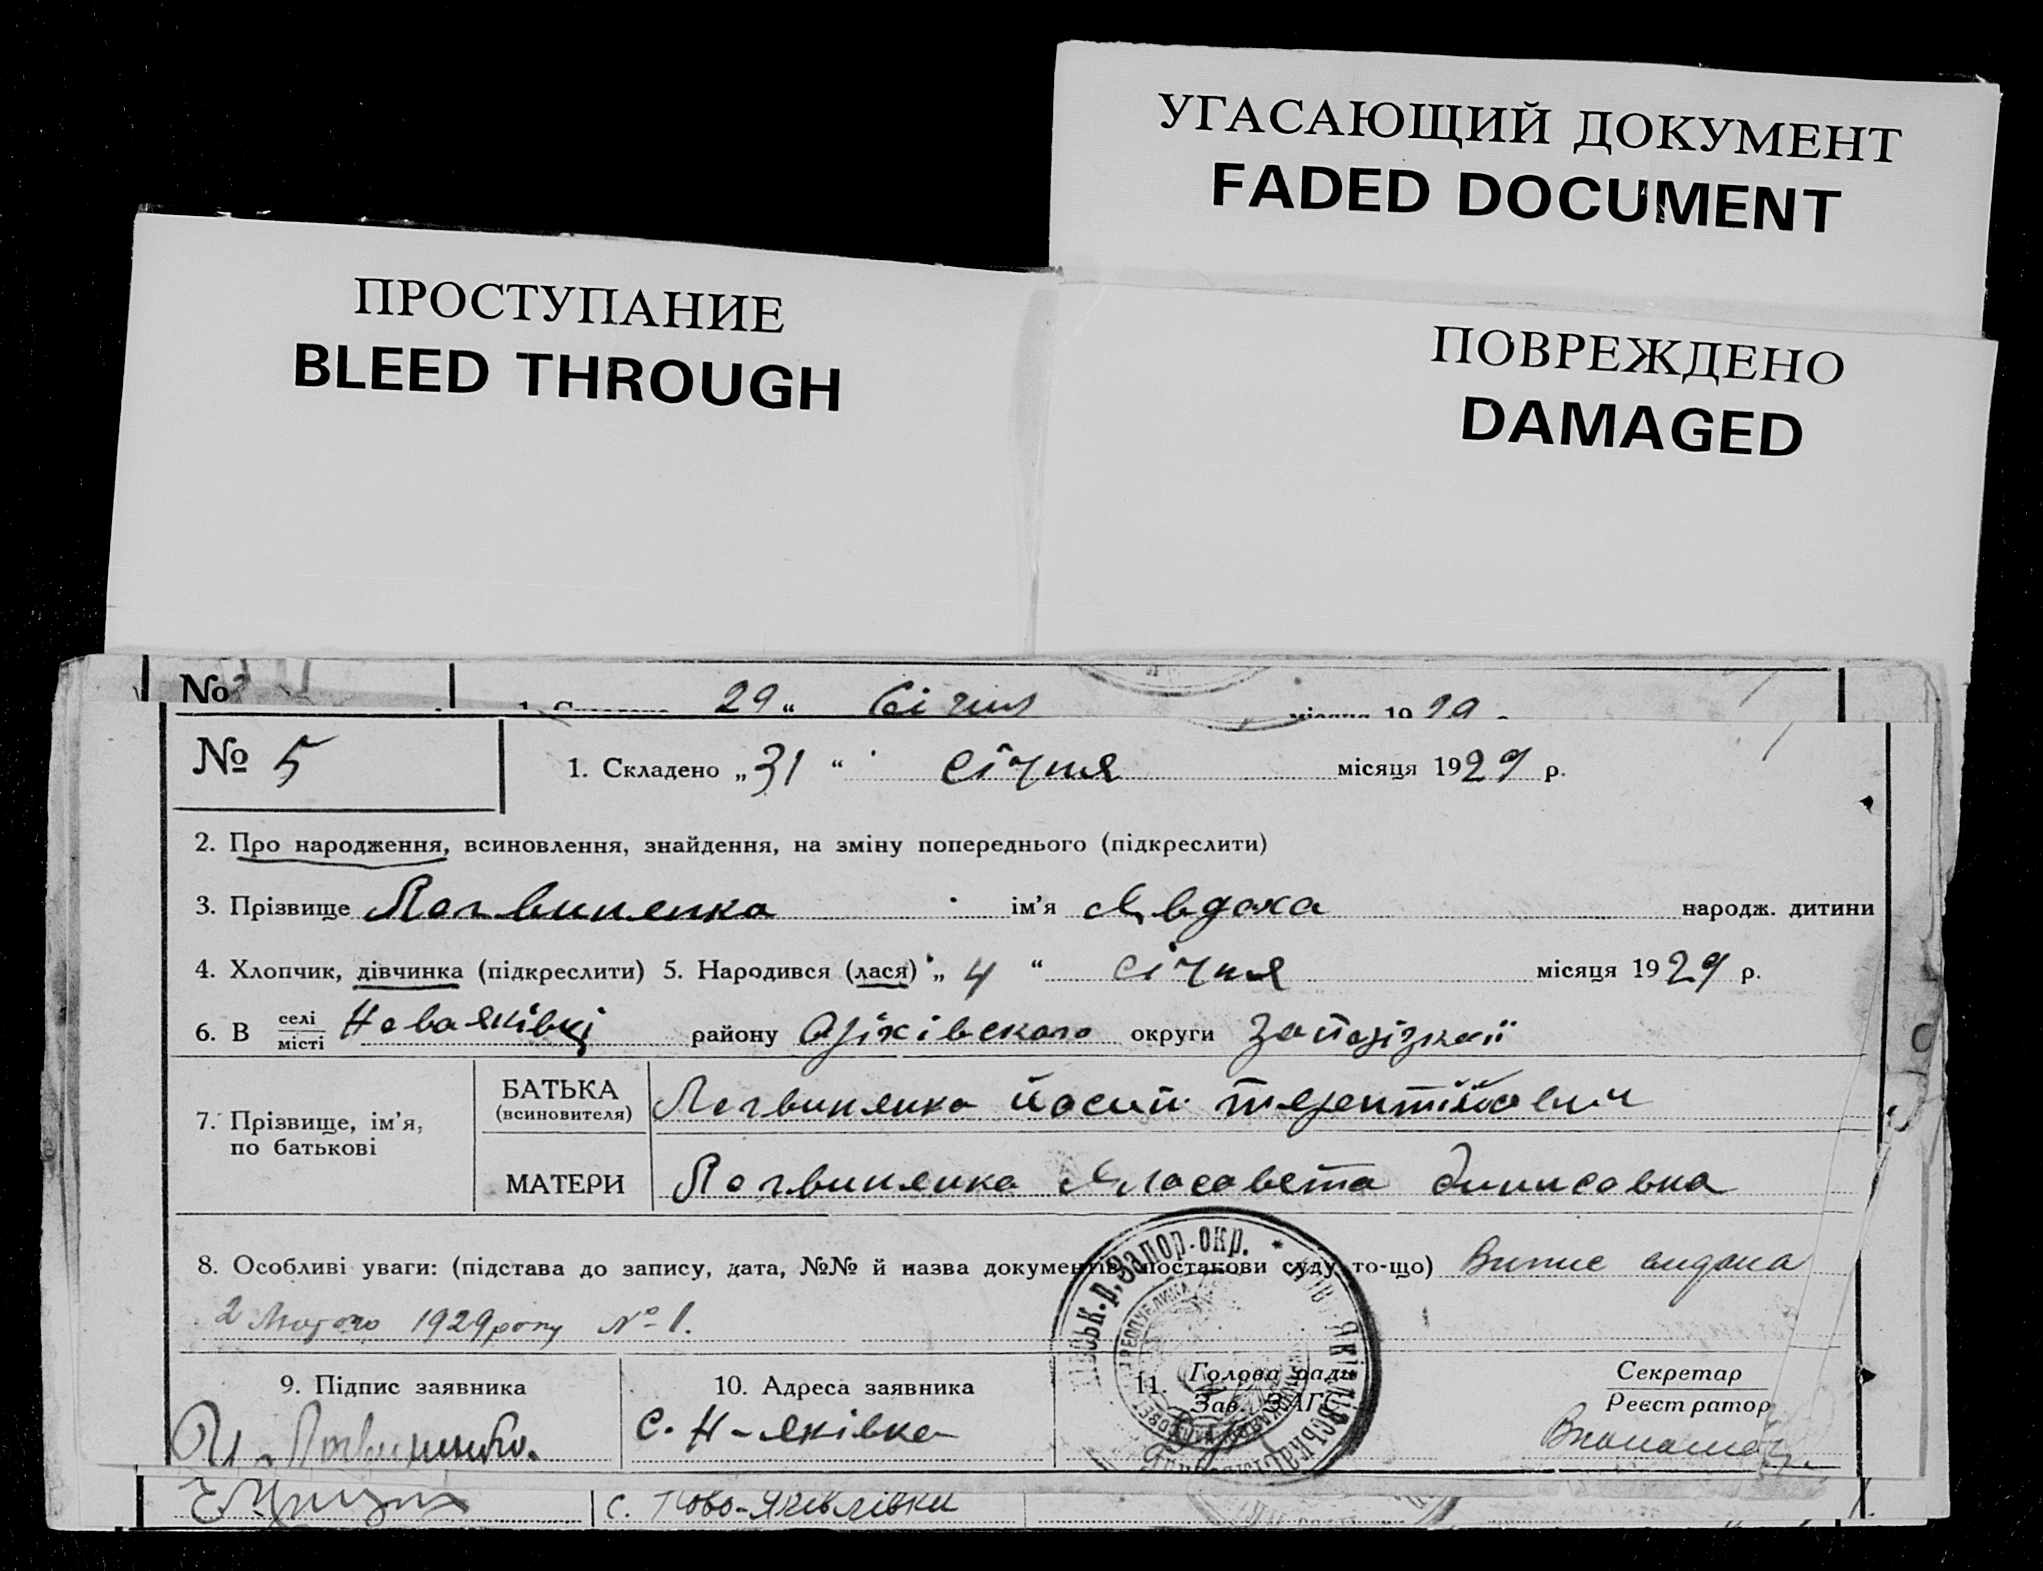 УГАСАЮЩИЙ ДОКУМЕНТ
FADED DOCUMENT
ПРОСТУПАНИЕ
BLEED THROUGH
ПОВРЕЖДЕНО
DAMAGED
№ 29 " Січня місяця 1929
№ 5
1. Складено „31“ січня місяця 1929 р.
2. Про народження, всиновлення, знайдення, на зміну попереднього (підкреслити)
3. Прізвище Логвиненко ім'я Явдоха народж. дитини
4. Хлопчик, дівчинка (підкреслити) 5. Народився (лася) „ 4 “ січня місяця 1929 р.
6. В селі
місті Новаяківці району Оріхівского округи
7. Прізвище, ім'я,
по батькові
БАТЬКА
(всиновителя) Логвиненко Йосип Терентійович
МАТЕРИ Логвиненко Ялосовета Динисовна
8. Особливі уваги: (підстава до запису, дата, №№ й назва документів, постанови суду то-що) Випис видана
2 Лютого 1929 року № 1.
9. Підпис заявника
Логвиненко.
10. Адреса заявника
с. Н-яківка
11. Голова ради
Зав. ЗАГС
Секретар
Реєстратор
с. Ново-Яковлівки